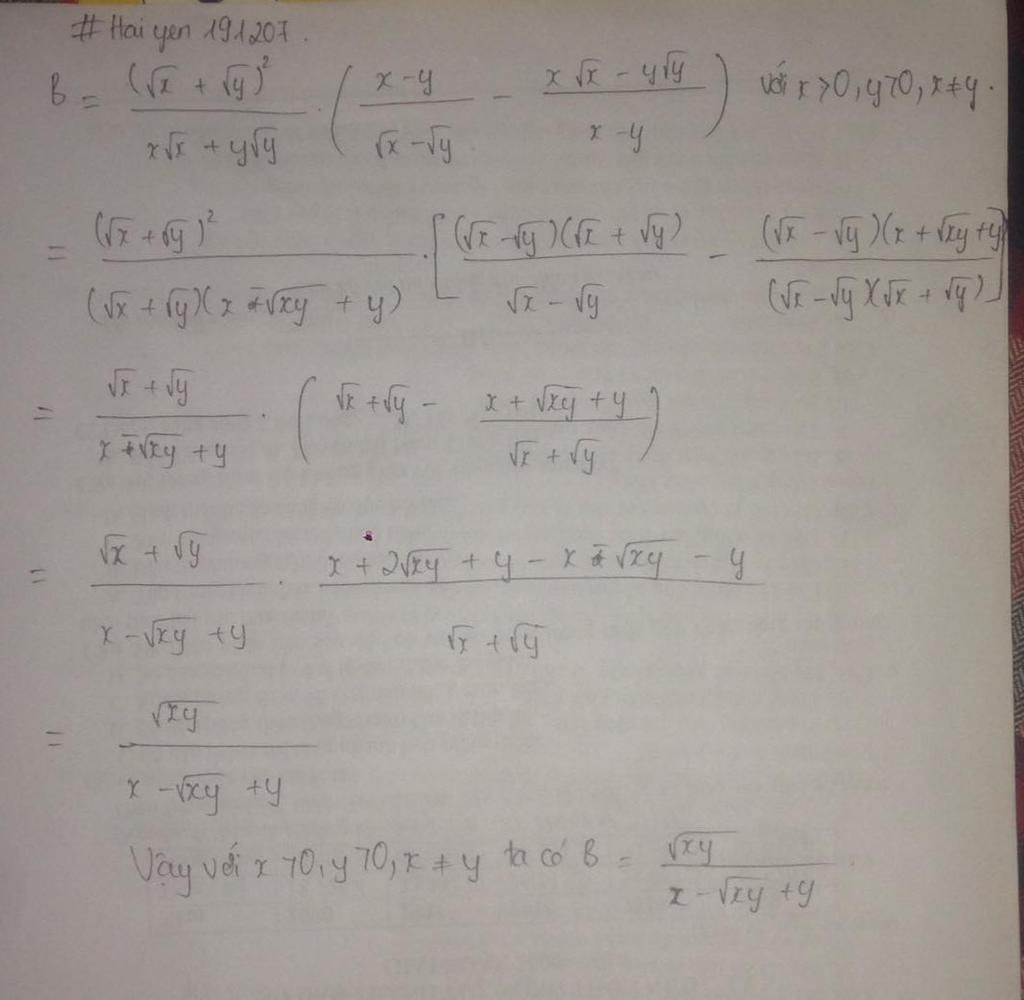 # Hai yen 191207.
B = (√x + √y)² / (x√x + y√y) . ( (x - y) / (√x - √y) - (x√x - y√y) / (x - y) ) với x > 0, y > 0, x ≠ y.
= (√x + √y)² / ((√x + √y)(x - √xy + y)) . [ (√x - √y)(√x + √y) / (√x - √y) - (√x - √y)(x + √xy + y) / ((√x - √y)(√x + √y)) ]
= (√x + √y) / (x - √xy + y) . ( √x + √y - (x + √xy + y) / (√x + √y) )
= (√x + √y) / (x - √xy + y) . (x + 2√xy + y - x - √xy - y) / (√x + √y)
= √xy / (x - √xy + y)
Vậy với x > 0, y > 0, x ≠ y ta có B = √xy / (x - √xy + y)